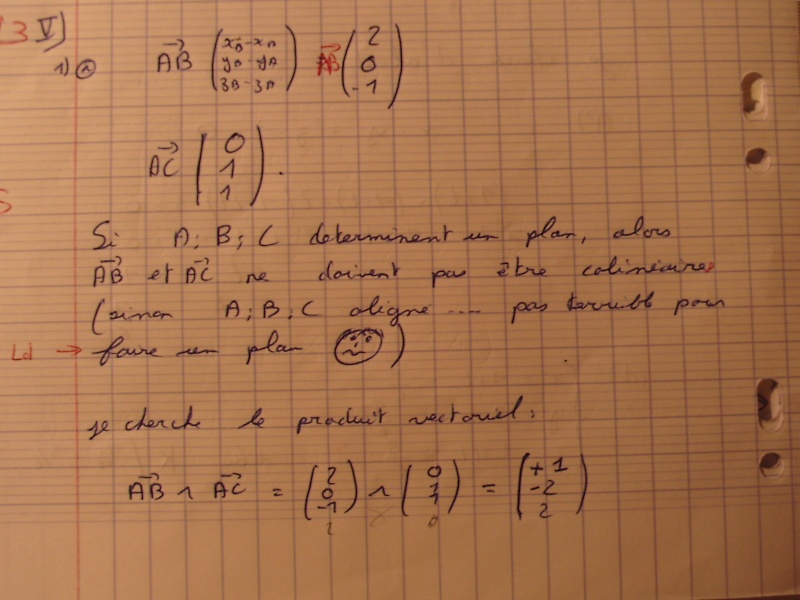 3 V]
1) a) AB (xB-xA yB-yA zB-zA) AB (2 0 -1)
AC (0 1 1).
Si A; B; C determinent un plan, alors
AB et AC ne doivent pas être colinéaires
(sinon A; B; C aligne .... pas terribb pour
Lol → faire un plan )
je cherche le produit vectoriel:
AB ∧ AC = (2 0 -1) ∧ (0 1 1) = (+1 -2 2)
2 0